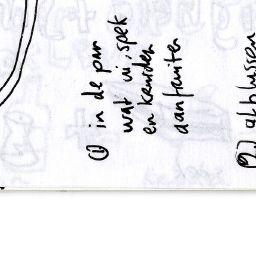 ① in de pan
wat ui, spek
en kruiden
aanfruiten
② afblussen